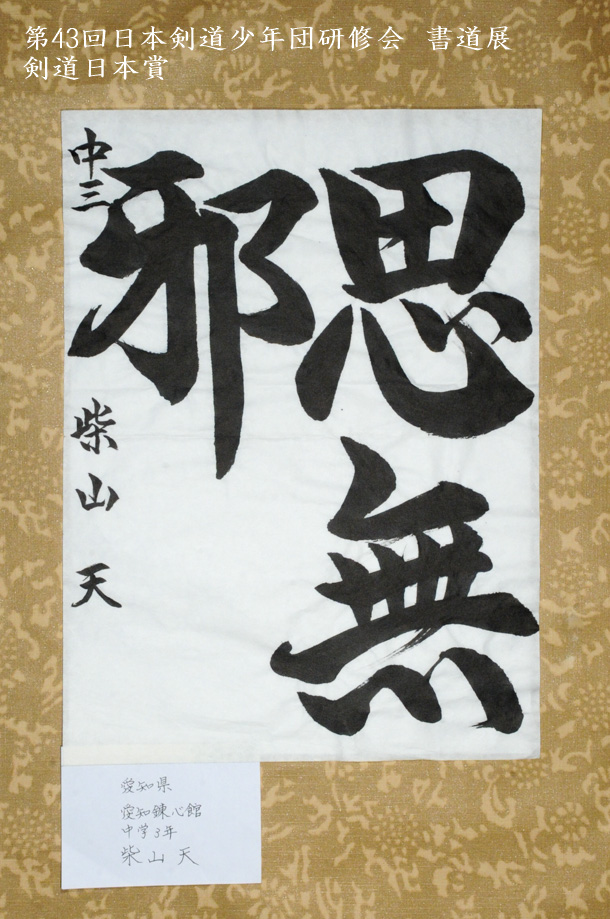 第43回日本剣道少年団研修会 書道展
剣道日本賞
思無
邪
中三 柴山 天
愛知県
愛知錬心館
中学3年
柴山 天